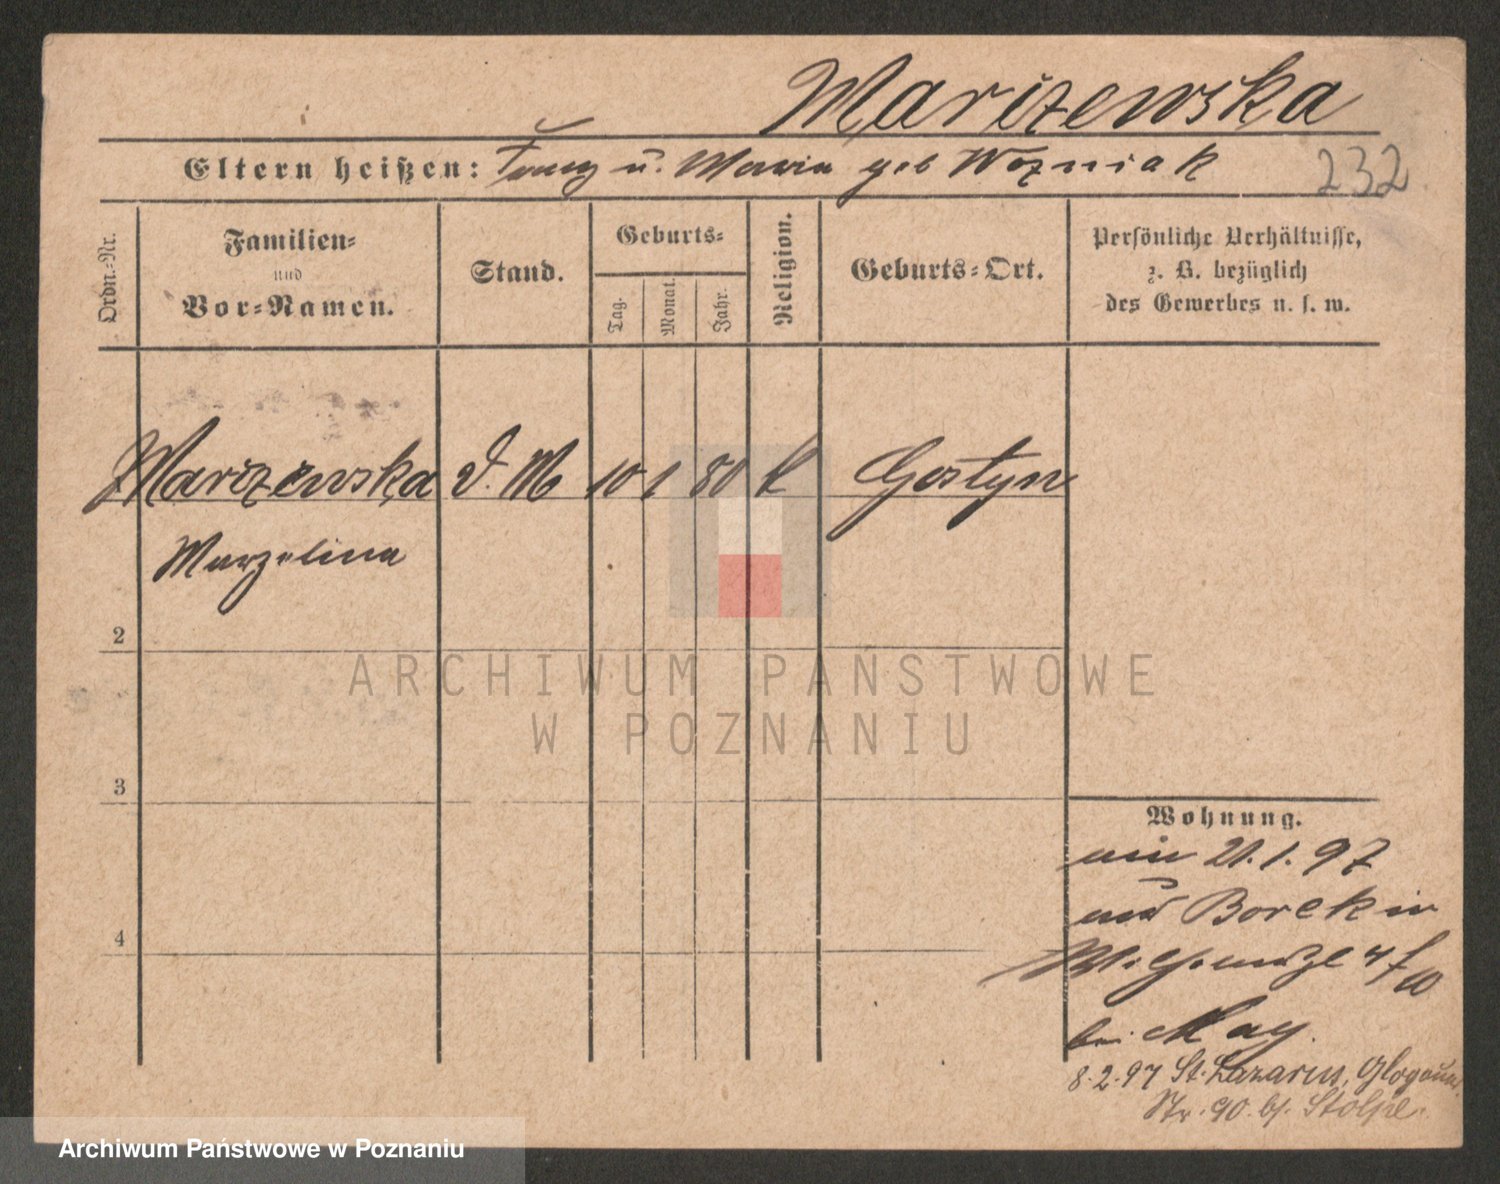 Marizewska
Eltern heißen: Franz u. Maria geb Wozniak 232
Ordn.-Nr.
Familien-
und
Vor-Namen.
Stand.
Geburts-
Tag.
Monat.
Jahr.
Religion.
Geburts-Ort.
Persönliche Verhältnisse,
z. B. bezüglich
des Gewerbes u. s. w.
Marizewska D. M 10 1 80 k Gostyn
Marzelina
2
3
4
Wohnung.
21.1.97
Borek in
bei May.
8.2.97 St. Lazarus, Glogauer
Str. 90. bj. Stolpe.
ARCHIWUM PAŃSTWOWE
W POZNANIU
Archiwum Państwowe w Poznaniu